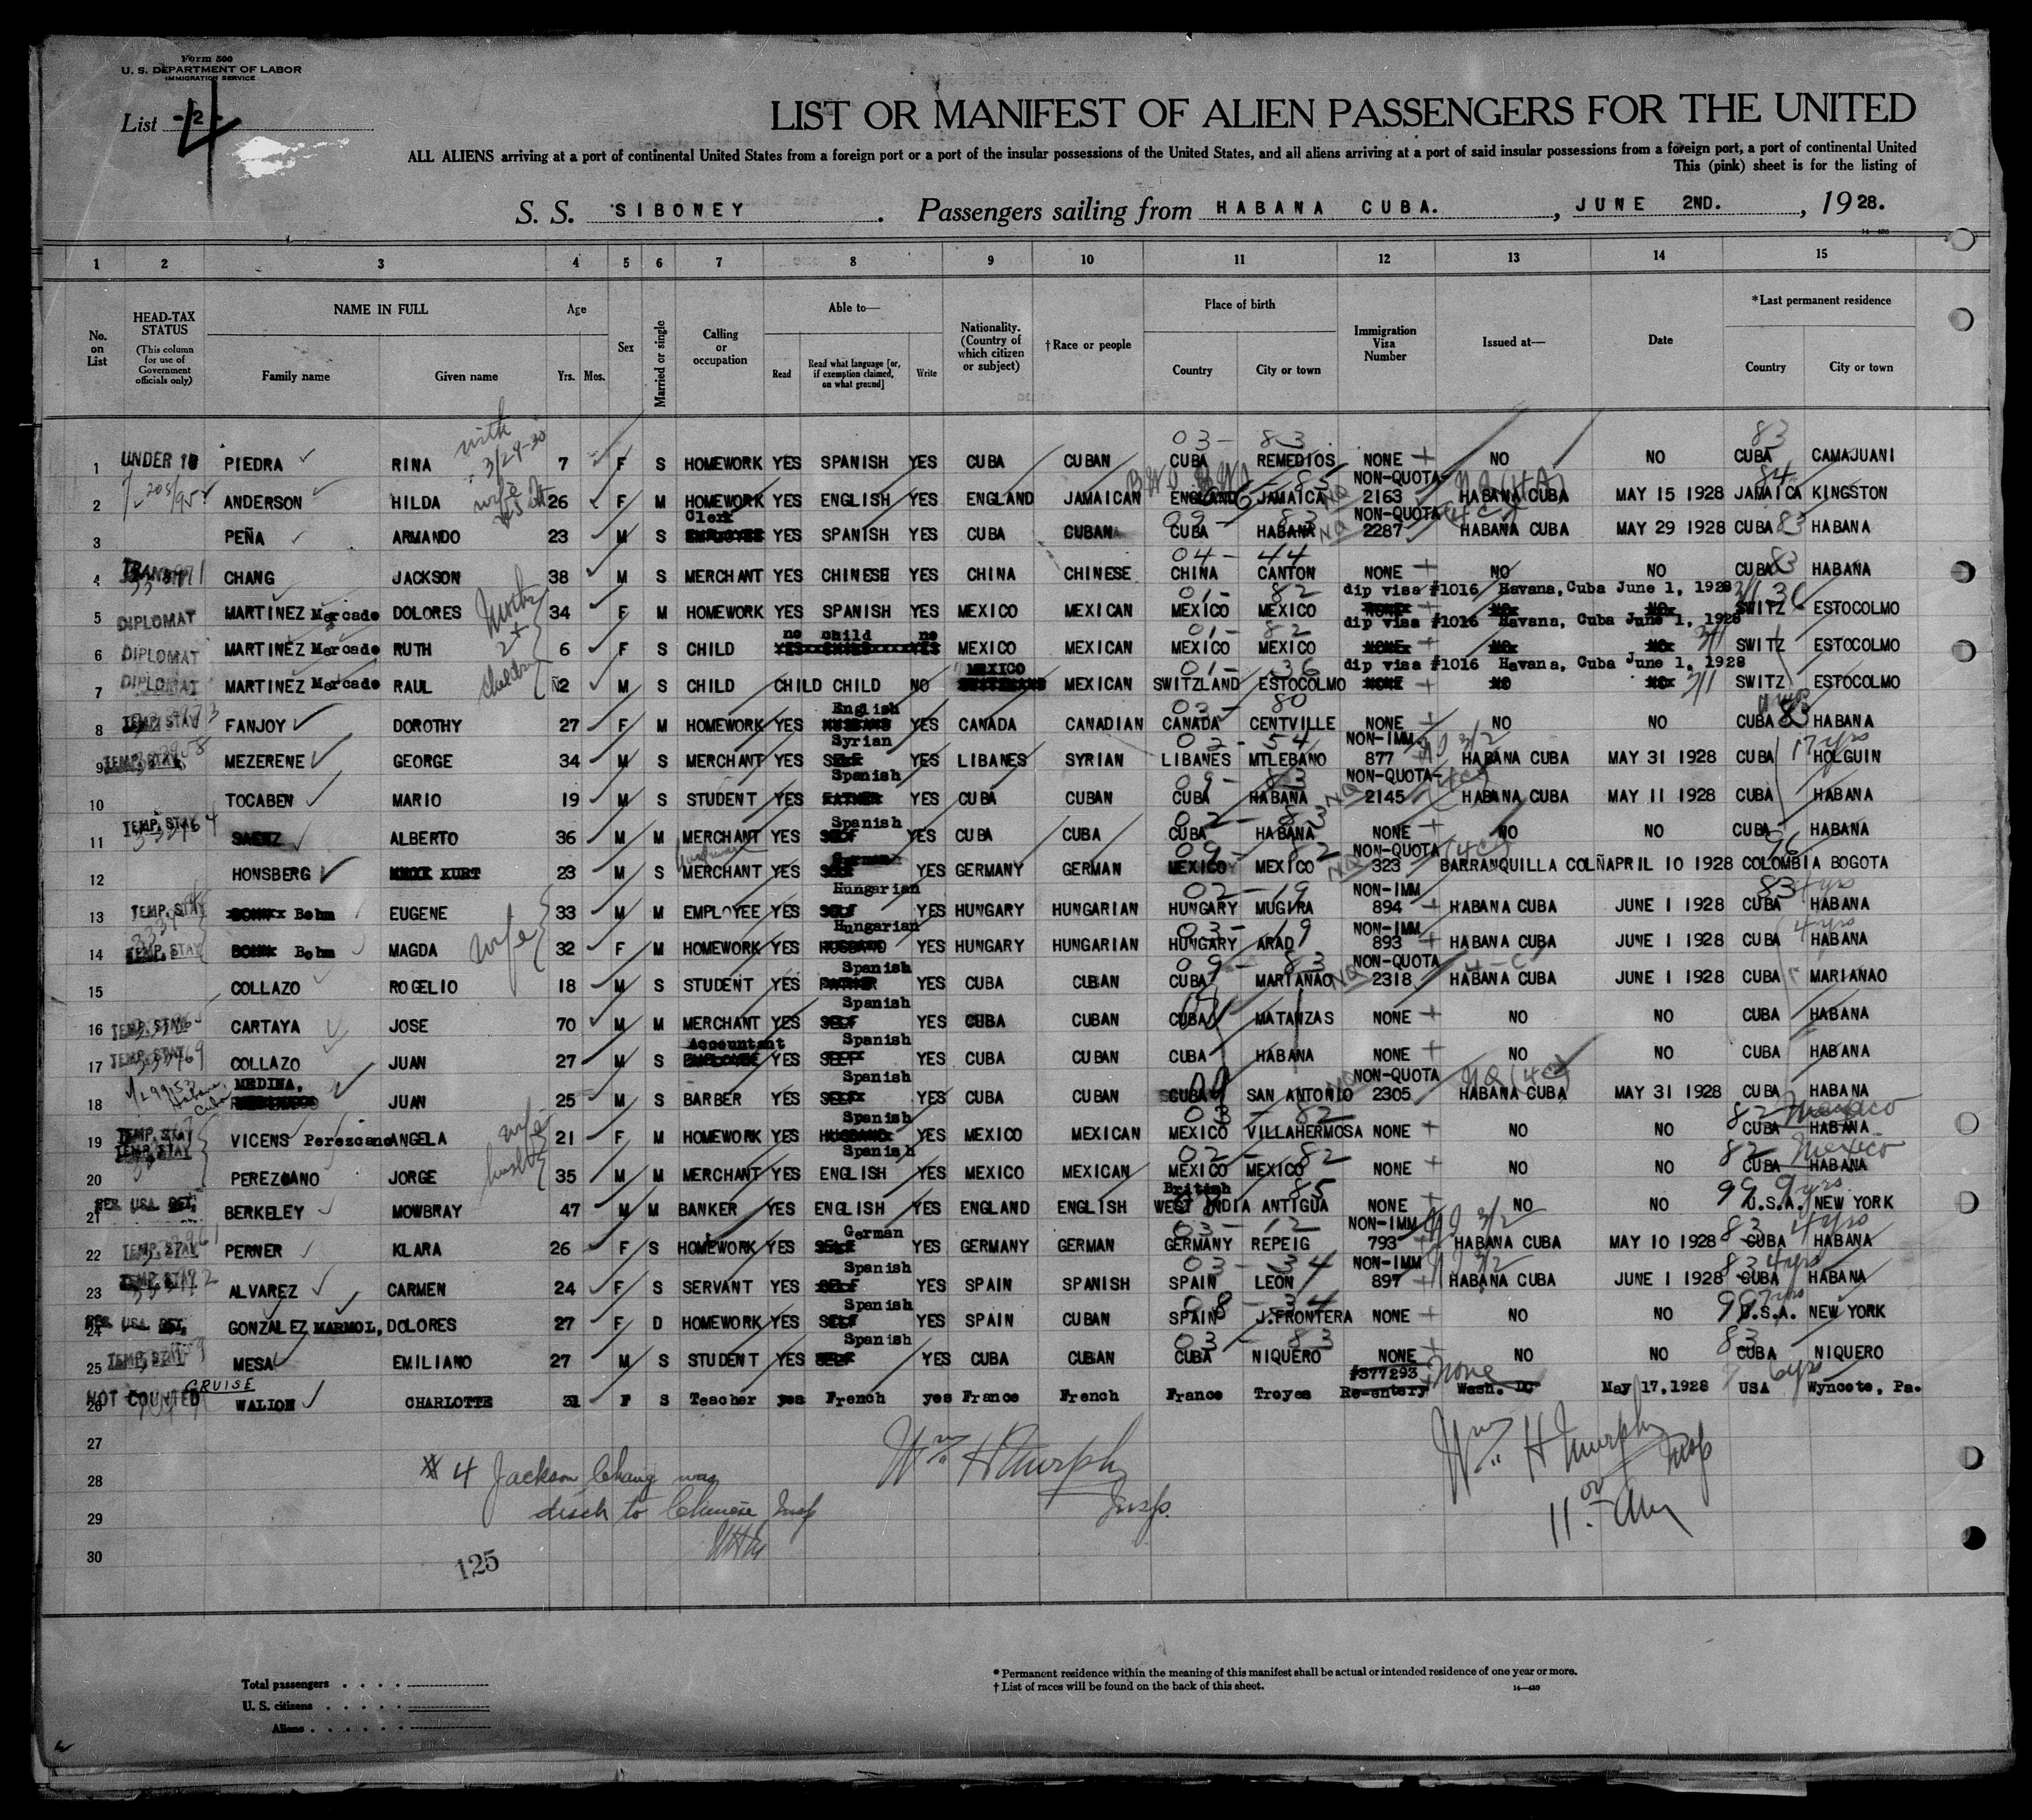 Form 500
U. S. DEPARTMENT OF LABOR
IMMIGRATION SERVICE
List -2-
4
LIST OR MANIFEST OF ALIEN PASSENGERS FOR THE UNITED
ALL ALIENS arriving at a port of continental United States from a foreign port or a port of the insular possessions of the United States, and all aliens arriving at a port of said insular possessions from a foreign port, a port of continental United
This (pink) sheet is for the listing of
S. S. SIBONEY. Passengers sailing from HABANA CUBA., JUNE 2ND., 1928.
1 2 3 4 5 6 7 8 9 10 11 12 13 14 15
No. on List
HEAD-TAX STATUS (This column for use of Government officials only)
NAME IN FULL
Family name Given name
Age
Yrs. Mos.
Sex
Married or single
Calling or occupation
Able to—
Read Read what language [or, if exemption claimed, on what ground] Write
Nationality. (Country of which citizen or subject)
† Race or people
Place of birth
Country City or town
Immigration Visa Number
Issued at—
Date
*Last permanent residence
Country City or town
with 3/29-30 03- 83 83
1 UNDER 16 PIEDRA RINA 7 F S HOMEWORK YES SPANISH YES CUBA CUBAN CUBA REMEDIOS NONE NO NO CUBA CAMAJUANI
2 ANDERSON HILDA 26 F M HOMEWORK YES ENGLISH YES ENGLAND JAMAICAN ENGLAND JAMAICA NON-QUOTA 2163 HABANA CUBA MAY 15 1928 JAMAICA KINGSTON
3 PEÑA ARMANDO 23 M S Clerk YES SPANISH YES CUBA CUBAN CUBA HABANA NON-QUOTA 2287 HABANA CUBA MAY 29 1928 CUBA 83 HABANA
04- 44 83
4 CHANG JACKSON 38 M S MERCHANT YES CHINESE YES CHINA CHINESE CHINA CANTON NONE NO NO CUBA HABANA
01- 82 dip visa #1016 Havana, Cuba June 1, 1928
5 DIPLOMAT MARTINEZ Mercado DOLORES 34 F M HOMEWORK YES SPANISH YES MEXICO MEXICAN MEXICO MEXICO NONE NO NO SWITZ ESTOCOLMO
no child no 01- 82 dip visa #1016 Havana, Cuba June 1, 1928
6 DIPLOMAT MARTINEZ Mercado RUTH 6 F S CHILD MEXICO MEXICAN MEXICO MEXICO NONE NO NO SWITZ ESTOCOLMO
MEXICO 01- 36 dip visa #1016 Havana, Cuba June 1, 1928
7 DIPLOMAT MARTINEZ Mercado RAUL 2 M S CHILD CHILD CHILD NO MEXICAN SWITZLAND ESTOCOLMO NONE NO NO SWITZ ESTOCOLMO
English 03- 80
8 TEMP. STAY FANJOY DOROTHY 27 F M HOMEWORK YES YES CANADA CANADIAN CANADA CENTVILLE NONE NO NO CUBA 83 HABANA
Syrian 02- 54 NON-IMM 17 yrs
9 TEMP. STAY MEZERENE GEORGE 34 M S MERCHANT YES SELF YES LIBANES SYRIAN LIBANES MTLEBANO 877 HABANA CUBA MAY 31 1928 CUBA HOLGUIN
Spanish 09- 83 NON-QUOTA
10 TOCABEN MARIO 19 M S STUDENT YES FATHER YES CUBA CUBAN CUBA HABANA 2145 HABANA CUBA MAY 11 1928 CUBA HABANA
Spanish 02- 83
11 TEMP. STAY SAENZ ALBERTO 36 M M MERCHANT YES SELF YES CUBA CUBA CUBA HABANA NONE NO NO CUBA HABANA
German 09- 82 NON-QUOTA
12 HONSBERG KURT 23 S MERCHANT YES SELF YES GERMANY GERMAN MEXICO MEXICO 323 BARRANQUILLA COL APRIL 10 1928 COLOMBIA BOGOTA
Hungarian 02- 19 NON-IMM 83 4 yrs
13 TEMP. STAY Bohm EUGENE 33 M M EMPLOYEE YES SELF YES HUNGARY HUNGARIAN HUNGARY MUGIRA 894 HABANA CUBA JUNE 1 1928 CUBA HABANA
wife Hungarian 03- 19 NON-IMM 4 yrs
14 TEMP. STAY Bohm MAGDA 32 F M HOMEWORK YES HUSBAND YES HUNGARY HUNGARIAN HUNGARY ARAD 893 HABANA CUBA JUNE 1 1928 CUBA HABANA
Spanish 09- 83 NON-QUOTA
15 COLLAZO ROGELIO 18 M S STUDENT YES YES CUBA CUBAN CUBA MARIANAO 2318 HABANA CUBA JUNE 1 1928 CUBA MARIANAO
Spanish
16 TEMP. STAY CARTAYA JOSE 70 M M MERCHANT YES SELF YES CUBA CUBAN CUBA MATANZAS NONE NO NO CUBA HABANA
Accountant Spanish
17 TEMP. STAY COLLAZO JUAN 27 M S EMPLOYEE YES YES CUBA CUBAN CUBA HABANA NONE NO NO CUBA HABANA
MEDINA, Spanish NON-QUOTA NQ (4c)
18 JUAN 25 M S BARBER YES YES CUBA CUBAN CUBA SAN ANTONIO 2305 HABANA CUBA MAY 31 1928 CUBA HABANA
wife Spanish 03- 82 82 Mexico
19 TEMP. STAY VICENS Perezcano ANGELA 21 F M HOMEWORK YES HUSBAND YES MEXICO MEXICAN MEXICO VILLAHERMOSA NONE NO NO CUBA HABANA
husb Spanish 02- 82 82 Mexico
20 TEMP. STAY PEREZCANO JORGE 35 M M MERCHANT YES ENGLISH YES MEXICO MEXICAN MEXICO MEXICO NONE NO NO CUBA HABANA
British 85 99 9 yrs.
21 BERKELEY MOWBRAY 47 M M BANKER YES ENGLISH YES ENGLAND ENGLISH WEST INDIA ANTIGUA NONE NO NO U.S.A. NEW YORK
German 03- 12 NON-IMM 3/2 83 4 yrs
22 TEMP. STAY PERNER KLARA 26 F S HOMEWORK YES SELF YES GERMANY GERMAN GERMANY REPEIG 793 HABANA CUBA MAY 10 1928 CUBA HABANA
Spanish 03- 34 NON-IMM 3/2 83 4 yrs
23 TEMP. STAY ALVAREZ CARMEN 24 F S SERVANT YES SELF YES SPAIN SPANISH SPAIN LEON 897 HABANA CUBA JUNE 1 1928 CUBA HABANA
Spanish 08- 34 99
24 GONZALEZ MARMOL, DOLORES 27 F D HOMEWORK YES SELF YES SPAIN CUBAN SPAIN J.FRONTERA NONE NO NO U.S.A. NEW YORK
Spanish 03- 83 83
25 TEMP. STAY MESA EMILIANO 27 M S STUDENT YES SELF YES CUBA CUBAN CUBA NIQUERO NONE NO NO CUBA NIQUERO
CRUISE #377293 none 6 yrs
26 NOT COUNTED WALION CHARLOTTE 31 F S Teacher yes French yes France French France Troyes Re-entery Wash. DC May 17, 1928 USA Wyncote, Pa.
27
28
29
30
# 4 Jackson Chang was
disch to Chinese Insp
WHM
Wm. H Murphy
Insp.
Wm. H Murphy Insp
11.00 AM
125
Total passengers
U. S. citizens
Aliens
* Permanent residence within the meaning of this manifest shall be actual or intended residence of one year or more.
† List of races will be found on the back of this sheet.
14—430